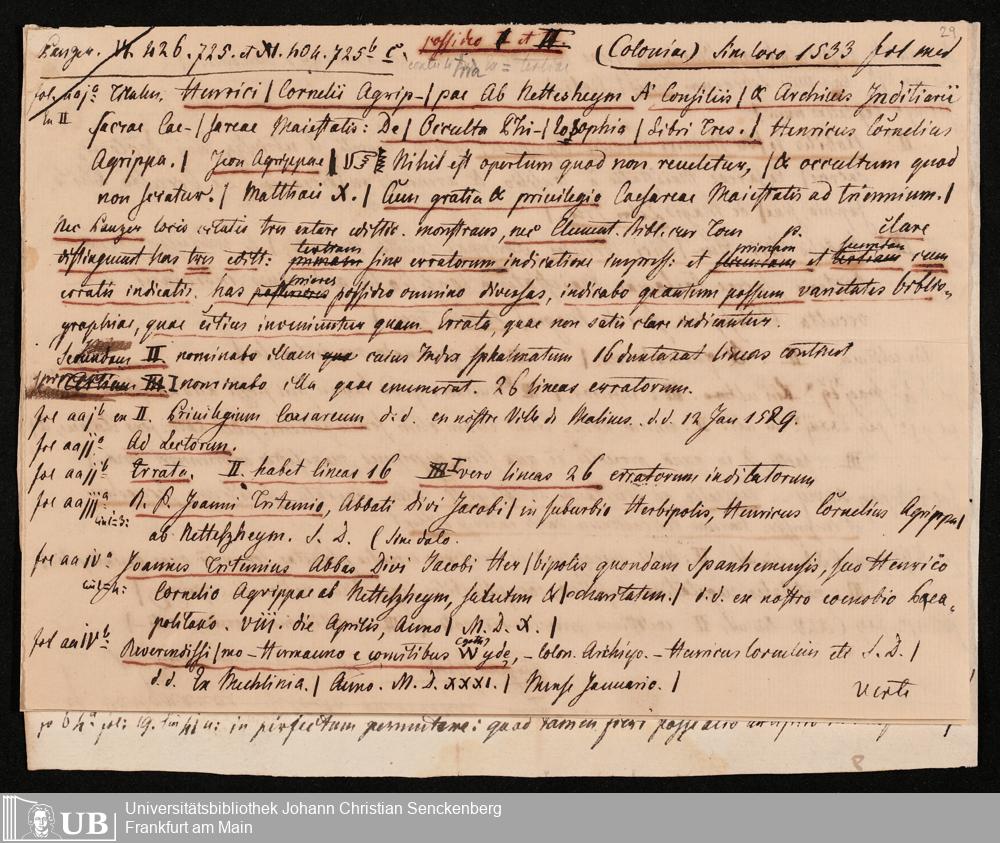 29
Panzer. VI. 426. 725. et XI. 404. 725b c. possideo I et II (Coloniae) Sine loco 1533 fol med
fol. aaja Titulus. Henrici | Cornelii Agrip- | pae Ab Nettesheym A' Consiliis | & Archiuis Inditiarii
in II sacrae Cae- | sareae Maiestatis: De | Occulta Phi- | losophia | Libri Tres. | Henricus Cornelius
Agrippa. | Icon Agrippae | Nihil est opertum quod non reueletur, | & occultum quod
non sciatur. | Matthaei X. | Cum gratia & priuilegio Caesareae Maiestatis ad triennium. |
Nec Panzer locis citatis tres extare editio. monstrans, nec Clement. Bibl. cur Tom p. clare
distinguunt has tres edit: tertiam sine erratorum indicatione impress: et primam et secundam cum
erratis indicatis. has priores possideo omnino diversas, indicabo quantum possum varietates biblio-
graphiae, quae citius inveniuntur quam Errata, quae non satis clare indicantur.
Secundam II nominabo illam cuius Index sphalmatum 16 duntaxat lineas continet
I nominabo illa quae enumerat. 26 lineas erratorum.
fol aajb in II. Privilegium Caesareum d:d. en nostre Ville de Malines. d.d. 12 Jan 1529.
fol aajja Ad Lectorem.
fol aajjb Errata. II. habet lineas 16 I vero lineas 26 erratorum indicatorum
fol aajjja R. P. Joanni Tritemio, Abbati Divi Jacobi | in suburbio Herbipolis, Henricus Cornelius Agrippa |
ab Nettesheym. S. D. (Sine dato.
fol aaiva Joannes Tritemius Abbas Divi Jacobi Her | bipolis quondam Spanhemensis, suo Henrico
Cornelio Agrippae ab Nettesheym, salutem & | charitatem. | d.d. en nostro coenobio Peea-
politano. viii. die Aprilis, Anno | M. D. X. |
fol aaivb Reverendissi | mo - Hermanno e comitibus Wyde, - Colon. Archiepo. - Henricus Cornelius etc S. D. |
d.d. Ex Mechlinia. | Anno. M. D. XXXI. | Mense Januario. | verte
in perfectum permutare: quod tamen fieri posse
8
UB Universitätsbibliothek Johann Christian Senckenberg
Frankfurt am Main